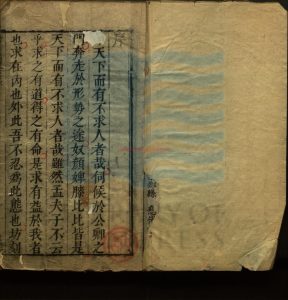 天下而有不求人者哉伺候於公卿之
門奔走於形勢之途奴顔婢膝比比皆是
天下而有不求人者哉雖然孟夫子不云
乎求之有道得之有命是求有益於我者
也求在內也外此吾不忍為此態也坊刻